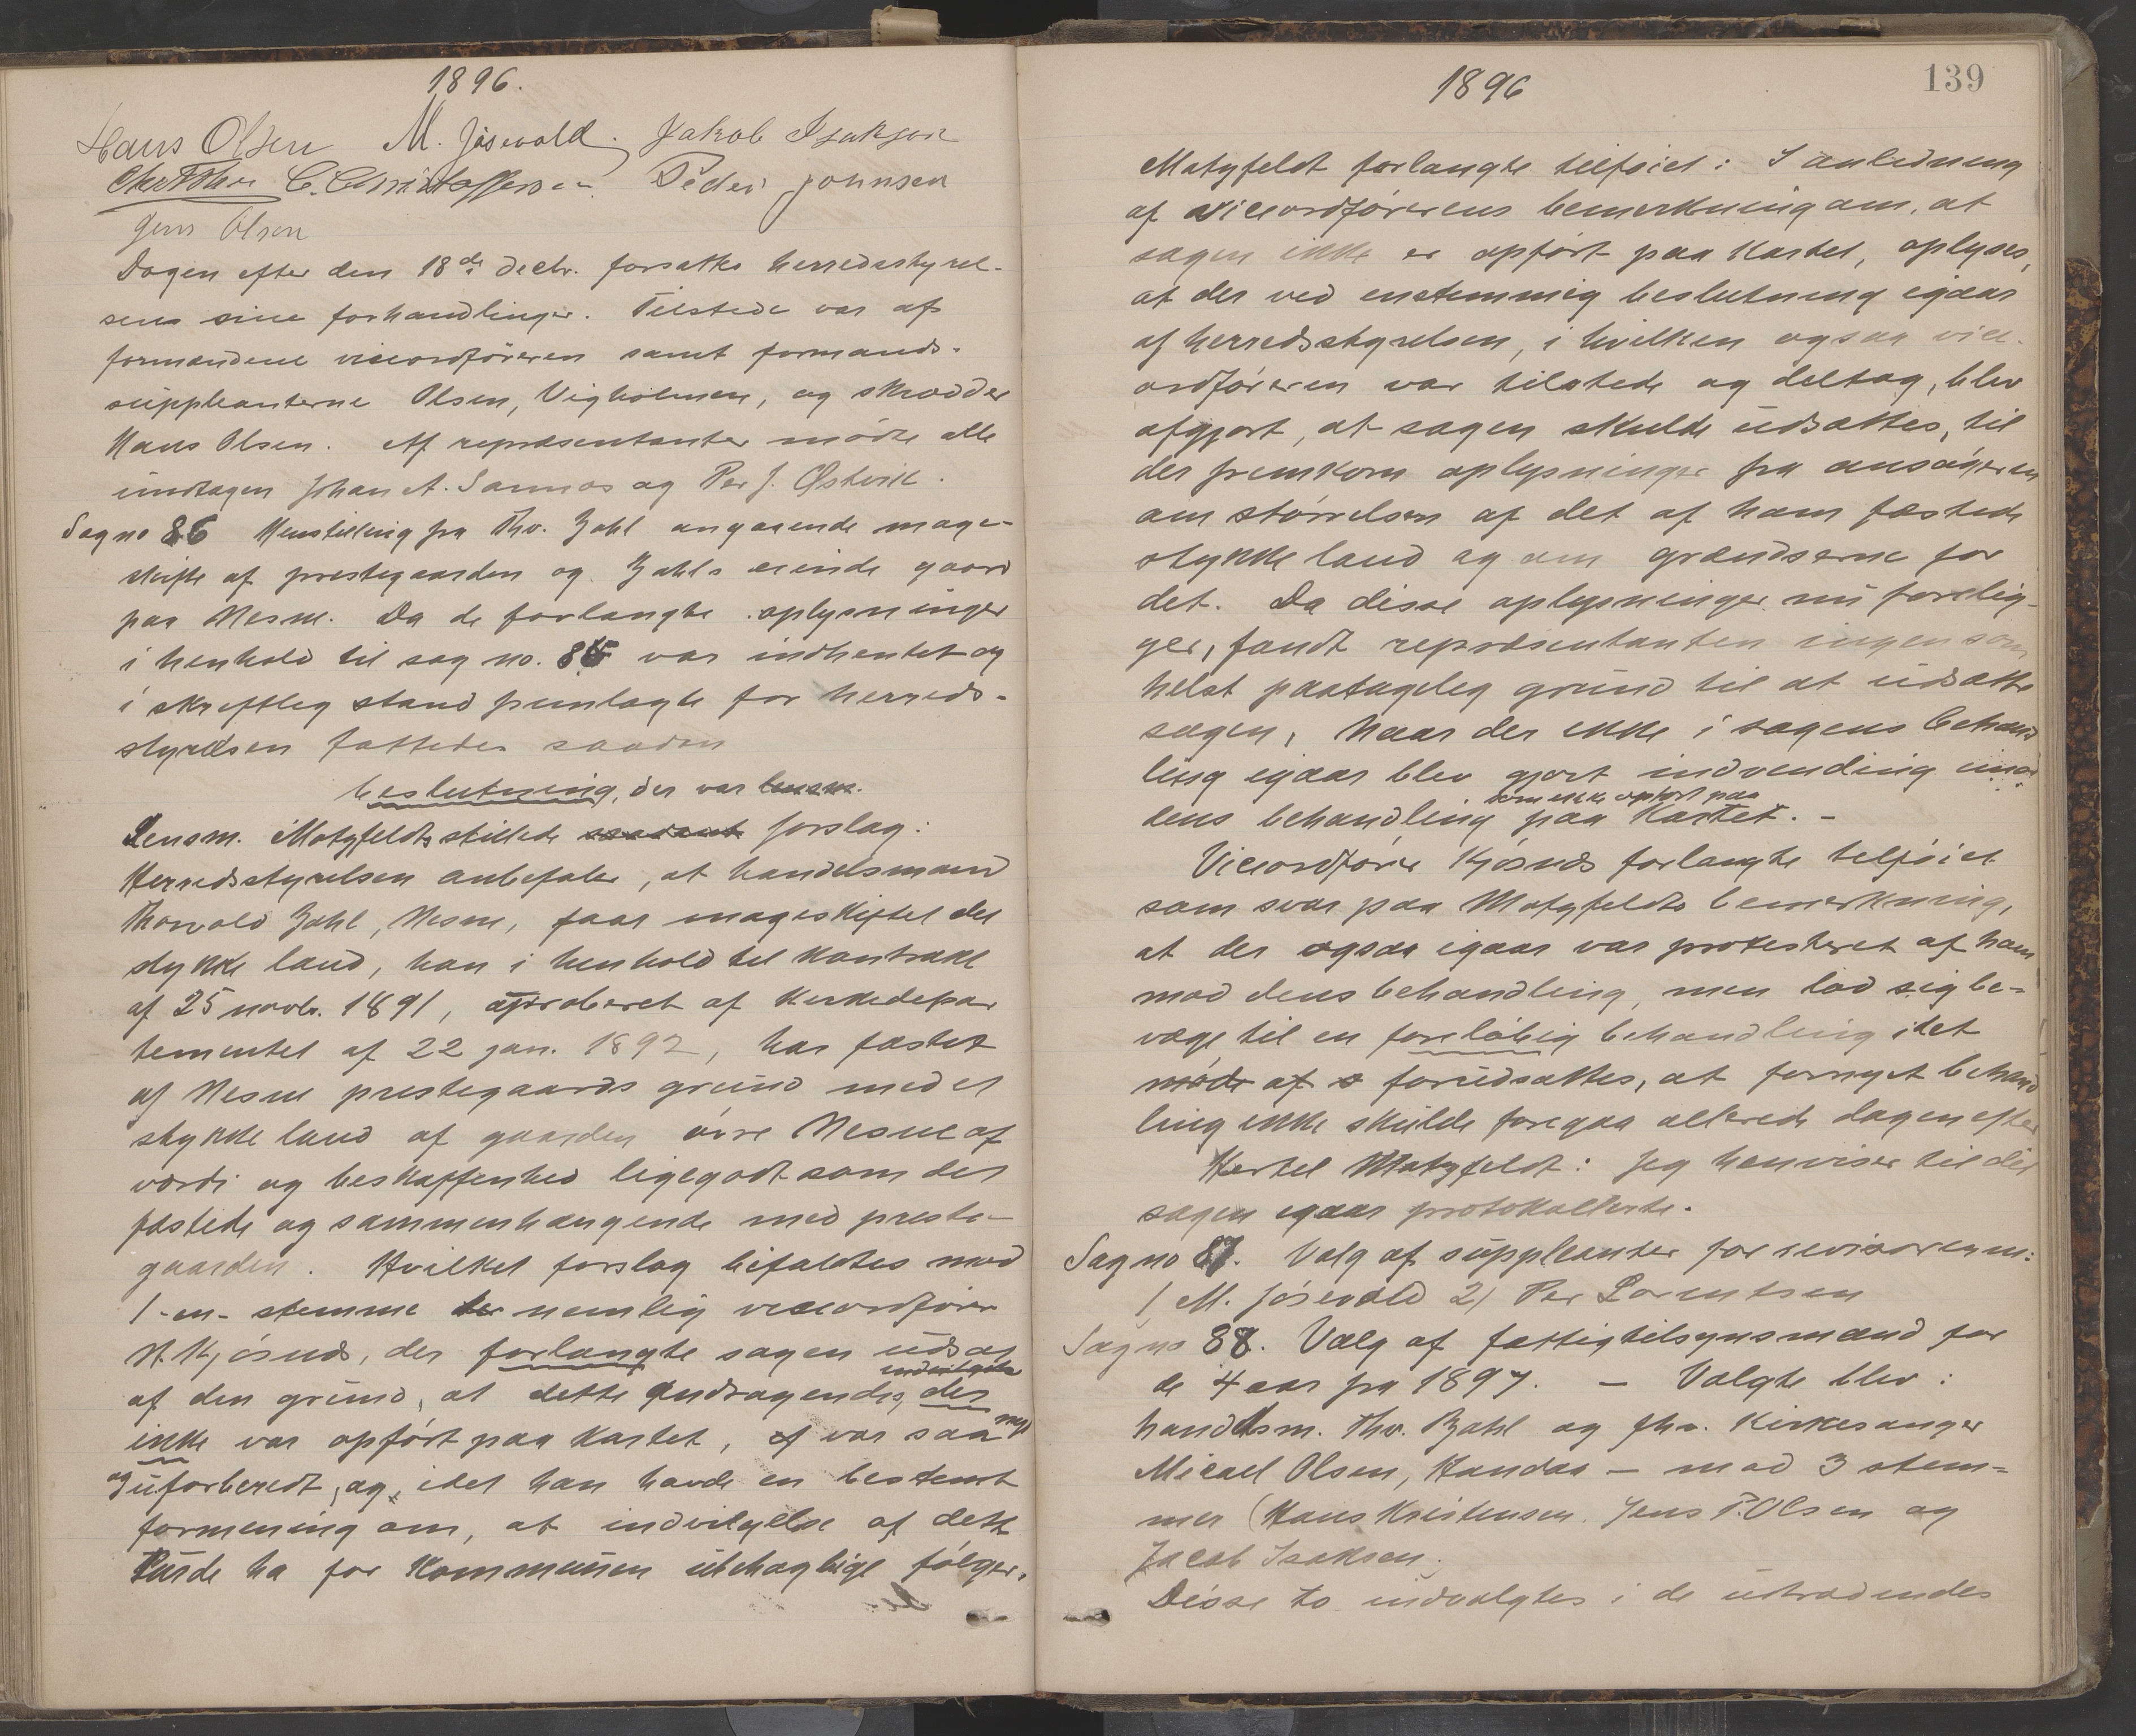 1896.
Hans Olsen M. Jøsevold. Jakob Isaksen
C. Christoffersen Peder Johnsen
Jens Olsen
Dagen efter den 18de decbr. forsatte herredsstyrel-
sens sine forhandlinger. Tilstede var af
formændene viceordføreren samt formands-
suppleanterne Olsen, Vigholmen, og skrædder
Hans Olsen. Af repræsentanter mødte alle
undtagen Johan A. Sannes og Per J. Østvik.
Sag no 86 Henstilling fra Thv. Zahl angaaende mage-
skifte af prestegaarden og Zahls eiende gaard
paa Nesne. Da de forlangte oplysninger
i henhold til sag no. 85 var indhentet og
i skriftlig stand fremlagte for herreds-
styrelsen fattedes saadan
beslutning, der var
Lensm. Motzfeldt stillede forslag:
Herredsstyrelsen anbefaler, at handelsmand
Thorvald Zahl, Nesne, faar mageskiftet det
stykke land, han i henhold til kontrakt
af 25 novbr. 1891, aproberet af Kirkedepar
tementet af 22 jan. 1892, har fæstet
af Nesne prestegaards grund med et
stykke land af gaarden øvre Nesne af
værdi og beskaffenhed ligegodt som det
fæstede og sammenhængende med preste-
gaarden. Hvilket forslag bifaldtes mod
1-en- stemme nemlig viceordfører
N. Kjøsnds, der forlangte sagen udsat
af den grund, at dette andragende, der
ikke var opført paa kartet, var saa nyt
og uforberedt, og, idet han havde en bestemt
formening om, at indvilgelse af dette
turde ha for kommunen ubehagelige følger.
1896
139
Motzfeldt forlangte tilføiet: I anledning
af viceordførerens bemerkning om, at
sagen ikke er opført paa kartet, oplyses,
at der ved enstemmig beslutning igaar
af herredsstyrelsen, i hvilken ogsaa vice-
ordføreren var tilstede og deltog, blev
afgjort, at sagen skulde udsættes, til
der fremkom oplysninger fra ansøgeren
om størrelsen af det af ham fæstede
stykke land og om grændserne for
det. Da disse oplysninger nu forelig-
ger, fandt repræsentanten ingen som
helst paatagelig grund til at udsætte
sagen, naar der ikke i sagens behand
ling igaar blev gjort indvending imod
som ikke opført paa
dens behandling paa Kartet. -
Viceordfører Kjøsnds forlangte tilføiet
som svar paa Motzfeldts bemerkning,
at der ogsaa igaar var protesteret af ham
mod dens behandling, men lod sig be-
væge til en foreløbig behandling idet
møde af forudsattes, at fornyet behand
ling ikke skulde foregaa allerede dagen efter
Hertil Motzfeldt: Jeg henviser til det
sagen igaar protokollerte.
Sag no 87. Valg af suppleanter for revisoren:
1 M. Jøsevold 2) Per Lorentsen
Sag no 88. Valg af fattigtilsynsmænd for
de 4 aar fra 1897. - Valgte blev:
handelsm. Thv. Zahl og fhv. Kirkesanger
Micael Olsen, Handaa - mod 3 stem-
mer (Hans Kristensen. Jens P. Olsen og
Jacob Isaksen.
Disse to indvalgtes i de udtrædendes